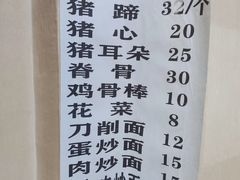 猪蹄 32/个
猪心 20
猪耳朵 25
脊骨 30
鸡骨棒 10
花菜 8
刀削面 12
蛋炒面 15
肉炒面 15